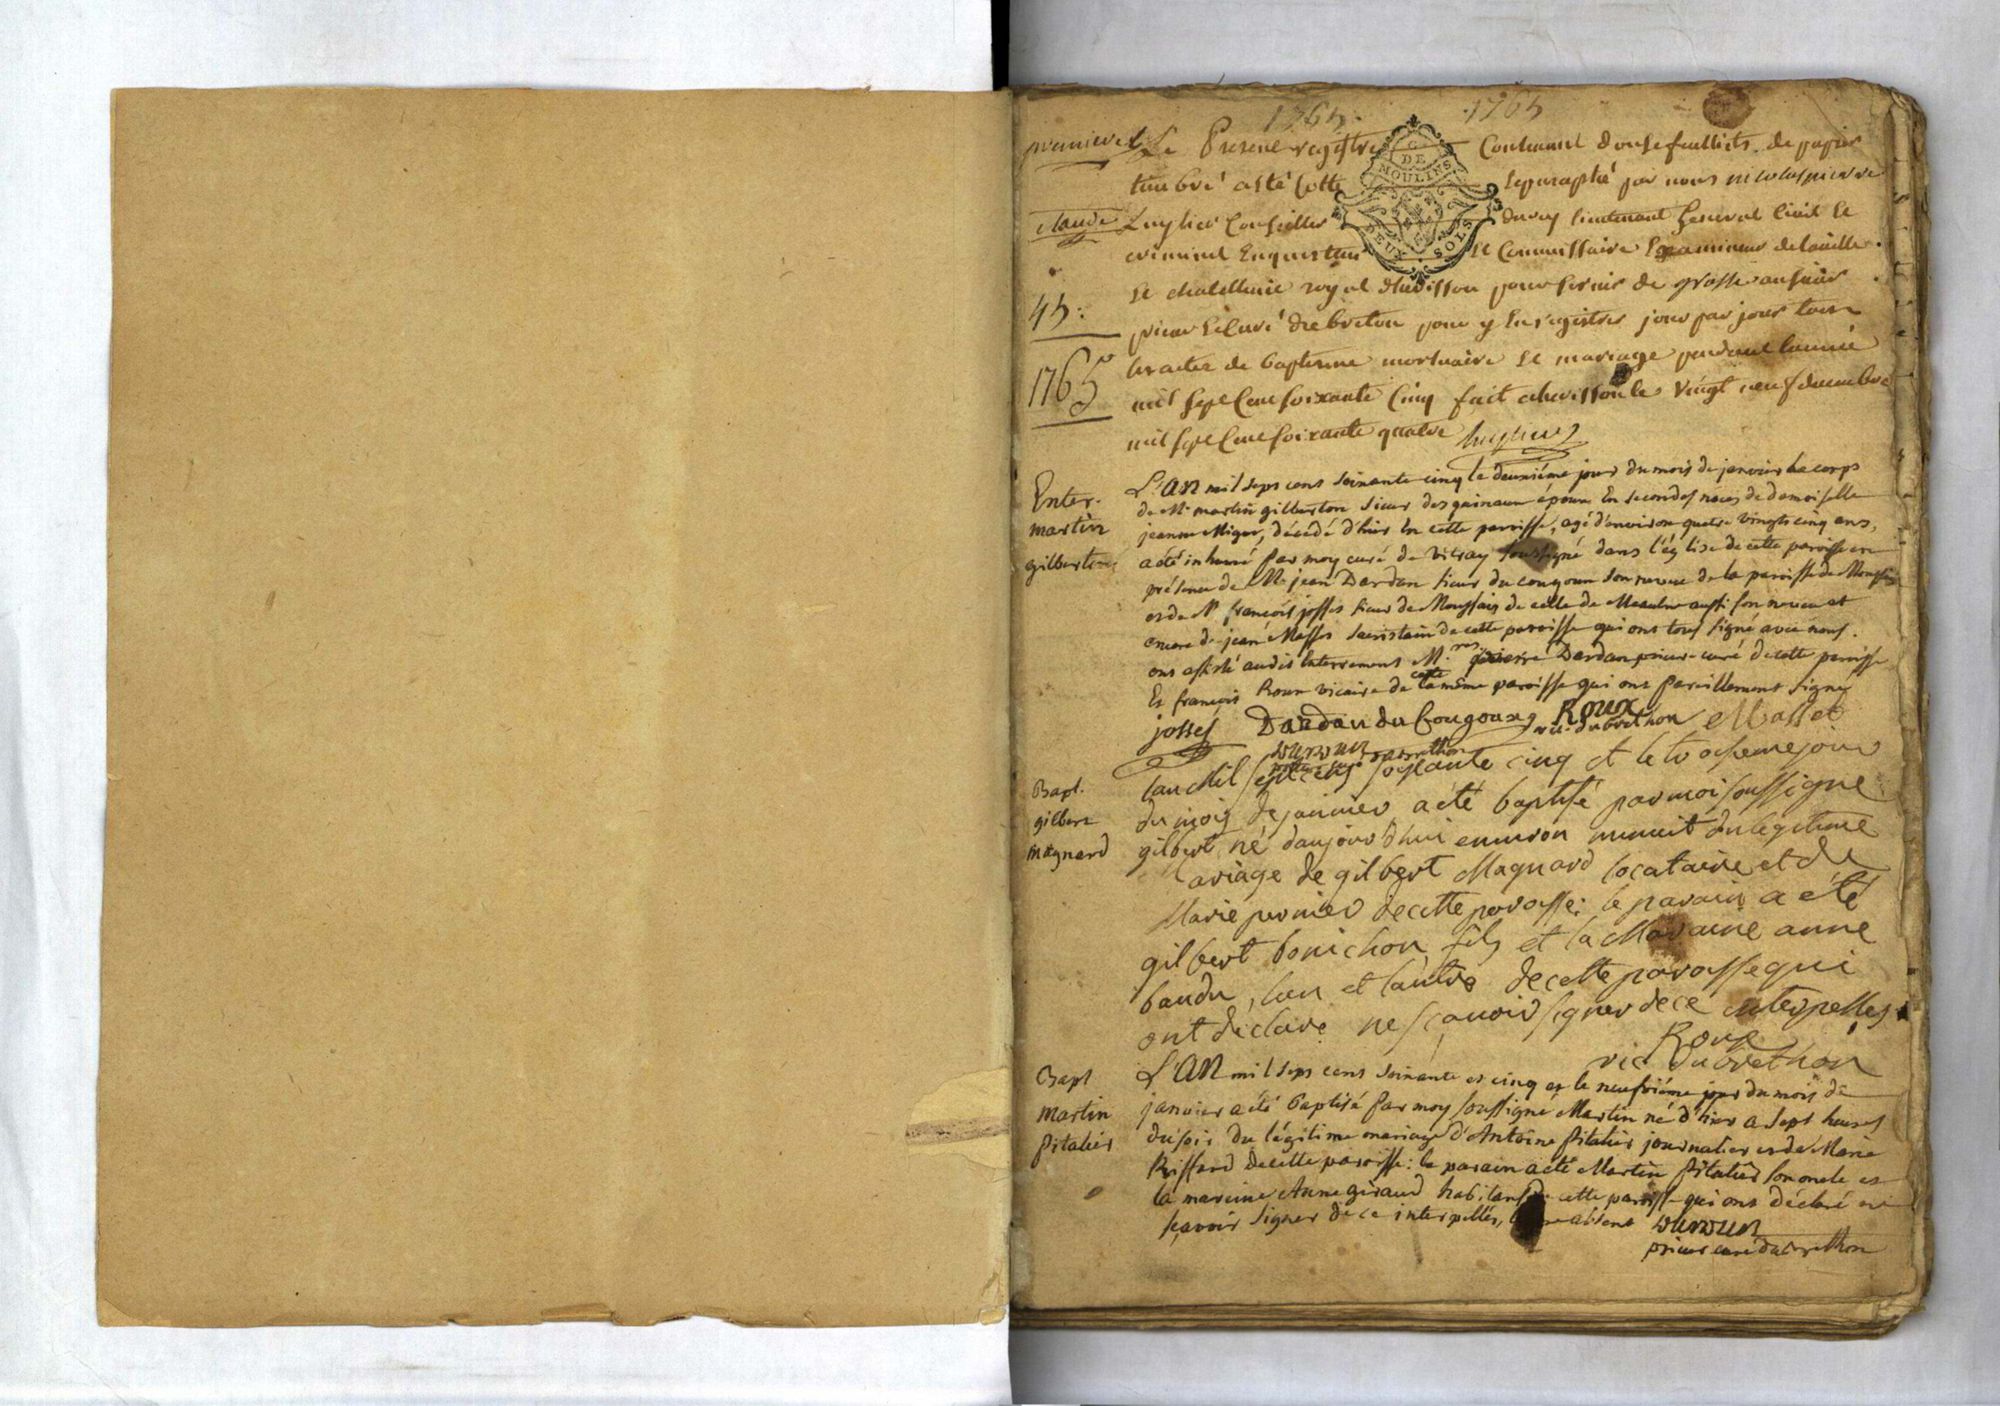 1765. 1765
premier Le Present registre Contenant douse feuillets de papier
timbré a été Cotté et paraphé par nous nicolas pierre
claude Luylier Conseiller du roy lieutenant General Civil et
criminel Enquesteur et Commissaire Examinateur de la ville
G. DE MOULINS
DEUX SOLS
et chatellenie royal d'hérisson pour servir de grosse au sieur
45.
prieur et curé du breton pour y Enregistrer jour par jour tous
les actes de baptesme mortuaire et mariage pendant lannée
1765
mil sept Cent soixante Cinq fait a hérisson le vingt neuf decembre
mil sept Cent soixante quatre
Enter.
martin
gilberton
L'AN mil sept cent soixante cinq le deuxiéme jour du mois de janvier le corps
de Mr martin gilberton sieur des guineaux époux En secondes noces de demoiselle
jeanne Migur, décédé d'hier En cette paroisse, agé d'environ quatre vingts cinq ans,
a été inhumé par moy curé de vitray soussigné dans l'église de cette paroisse en
présence de Mr jean Dardan sieur du cougoux son neveu de la paroisse de
et de Mr françois josses sieur de Moussais de celle de Meaulne aussi son neveu et
encore de jean Masset sacristain de cette paroisse qui ont tous signé avec nous.
ont assisté audit Enterrement Mres pierre Dardan prieur-curé de cette paroisse
Et françois Roux vicaire de cette même paroisse qui ont pareillement signé
josses Dardan du Cougoux Roux vic. du brethon Masset
Bapt.
gilbert
magnard
lan Mil sept cens soixante cinq et le troisieme jour
du mois de janvier a été baptisé par moi soussigné
gilbert né d'aujourd'hui environ minuit du legitime
Mariage de gilbert Magnard locataire et de
Marie perrnier de cette paroisse: le parain a été
gilbert bonichon fils et la Maraine anne
baudu, lun et lautre de cette paroisse qui
ont déclaré ne sçavoir signer de ce interpellés
Roux
vic du brethon
Bapt
Martin
Pitalier
L'AN mil sept cent soixante et cinq et le neufviéme jour du mois de
janvier a été baptisé par moy soussigné Martin né d'hier a sept heures
du soir du légitime mariage d'Antoine Pitalier journalier et de Marie
Riffard de cette paroisse: le parain a été Martin Pitalier son oncle et
la mareine Anne géraud habitans de cette paroisse qui ont déclaré ne
sçavoir signer de ce interpellés, absent
prieur curé du brethon